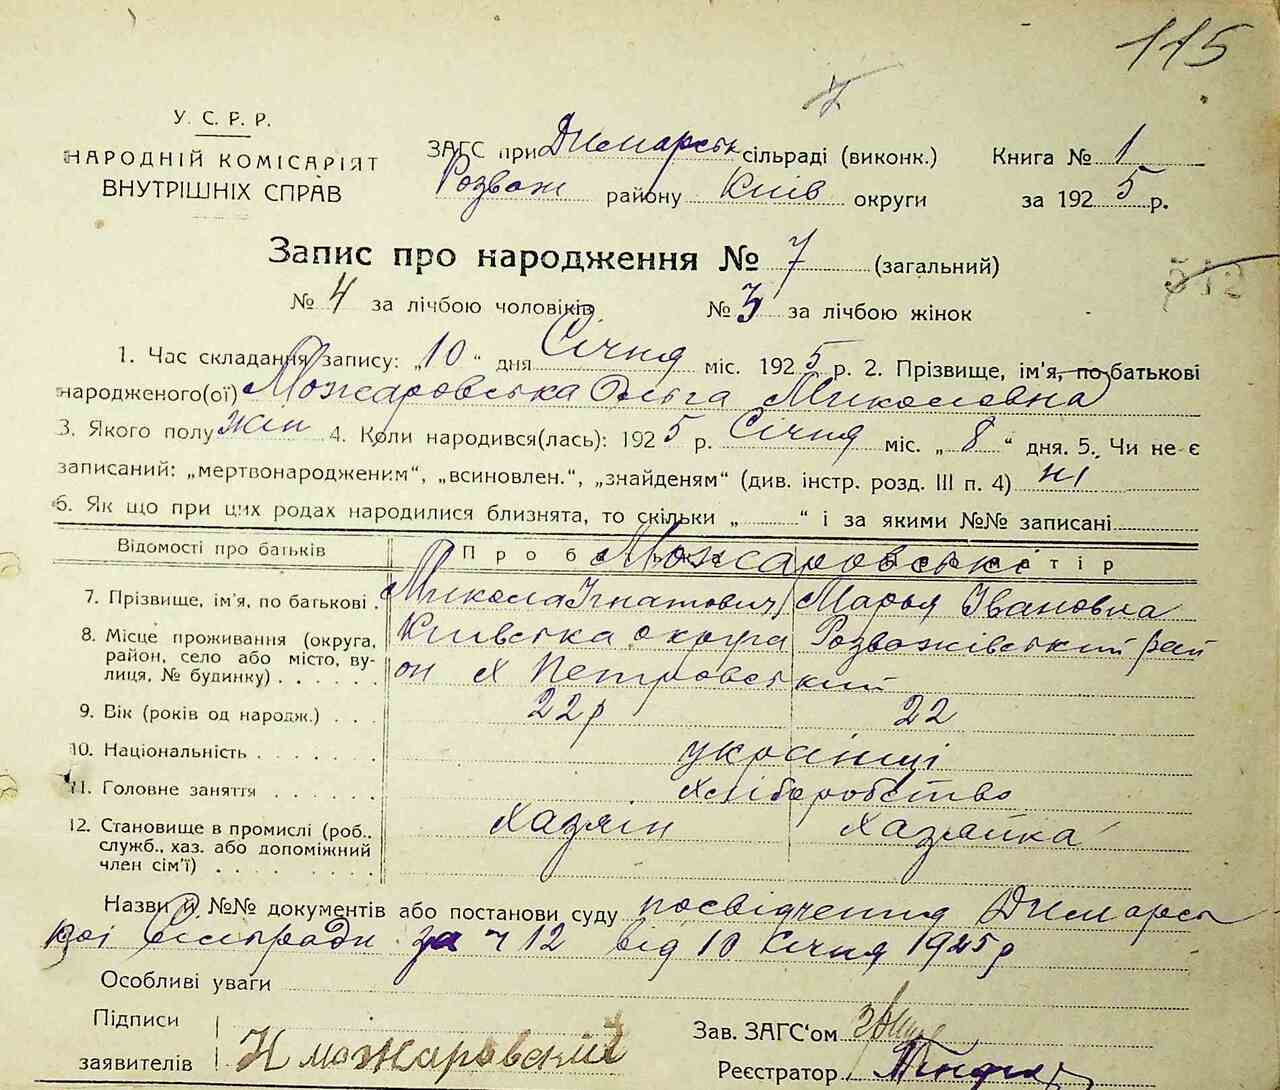 115
У. С. Р. Р.
НАРОДНІЙ КОМІСАРІЯТ
ВНУТРІШНІХ СПРАВ
7
ЗАГС при Димарськ сільраді (виконк.) Книга № 1
Розваж району Київ округи за 1925 р.
Запис про народження № 7 (загальний)
№ 4 за лічбою чоловіків № 3 за лічбою жінок
1. Час складання запису: „10“ дня Січня міс. 1925 р. 2. Прізвище, ім'я, по батькові
народженого(ої) Можаровська Ольга Миколовна
3. Якого полу жін 4. Коли народився(лась): 1925 р. Січня міс. „8“ дня. 5. Чи не є
записаний: „мертвонародженим“, „всиновлен.“, „знайденям“ (див. інстр. розд. III п. 4) ні
6. Як що при цих родах народилися близнята, то скільки „ “ і за якими №№ записані
Відомості про батьків Про б Можаровські тір
7. Прізвище, ім'я, по батькові . Микола Ігнатович Марья Івановна
8. Місце проживання (округа, Київська округа Розважівський рай
район, село або місто, ву-
лиця, № будинку) . . . . . он х Петровський
9. Вік (років од народж.) . . . 22 р 22
10. Національність . . . . . . українці
11. Головне заняття . . . . . хліборобство
12. Становище в промислі (роб., хазяін хазяйка
служб., хаз. або допоміжний
член сім'ї) . . . . . . . .
Назви й №№ документів або постанови суду посвідчення Димарсь
коі Сільради за ч 12 від 10 Січня 1925 р
Особливі уваги
Підписи
заявителів Н можаровский
Зав. ЗАГС'ом
Реєстратор